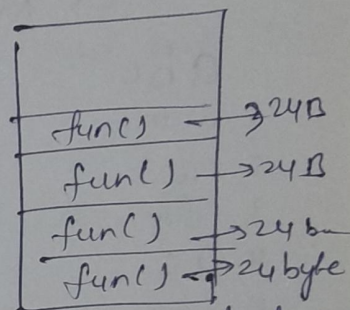 fun() → 24B
fun() → 24B
fun() → 24
fun() → 24byte